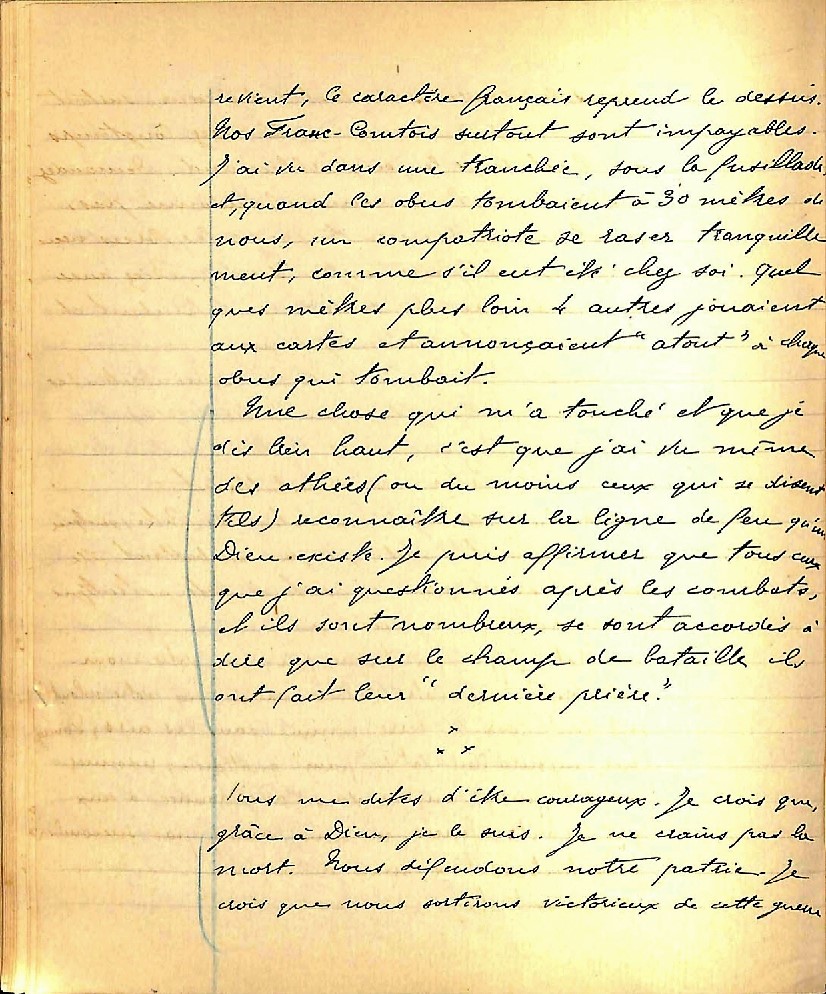 revient, le caractère français reprend le dessus.
Nos Franc-Comtois surtout sont impayables.
J'ai vu dans une tranchée, sous la fusillade,
et, quand les obus tombaient à 30 mètres de
nous, un compatriote se raser tranquille
ment, comme s'il eut été chez soi. Quel
ques mètres plus loin 4 autres jouaient
aux cartes et annonçaient "atout" à chaque
obus qui tombait.
Une chose qui m'a touché et que je
dis bien haut, c'est que j'ai vu même
des athées (ou du moins ceux qui se disent
tels) reconnaître sur la ligne de feu qu'un
Dieu existe. Je puis affirmer que tous ceux
que j'ai questionnés après les combats,
et ils sont nombreux, se sont accordés à
dire que sur le champ de bataille ils
ont fait leur "dernière prière."
x
x x
Vous me dites d'être courageux. Je crois que,
grâce à Dieu, je le suis. Je ne crains pas la
mort. Nous défendons notre patrie. Je
crois que nous sortirons victorieux de cette guerre